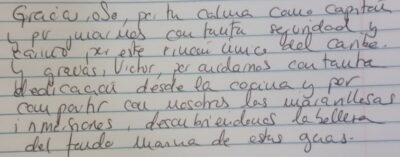 Gracias, José, por tu calma como capitán
y por guiarnos con tanta seguridad y
cariño por este rincón único del caribe.
Y gracias, Victor, por cuidarnos con tanta
dedicación desde la cocina y por
compartir con nosotros las maravillosas
inmersiones, descubriéndonos la belleza
del fondo marino de estas aguas.